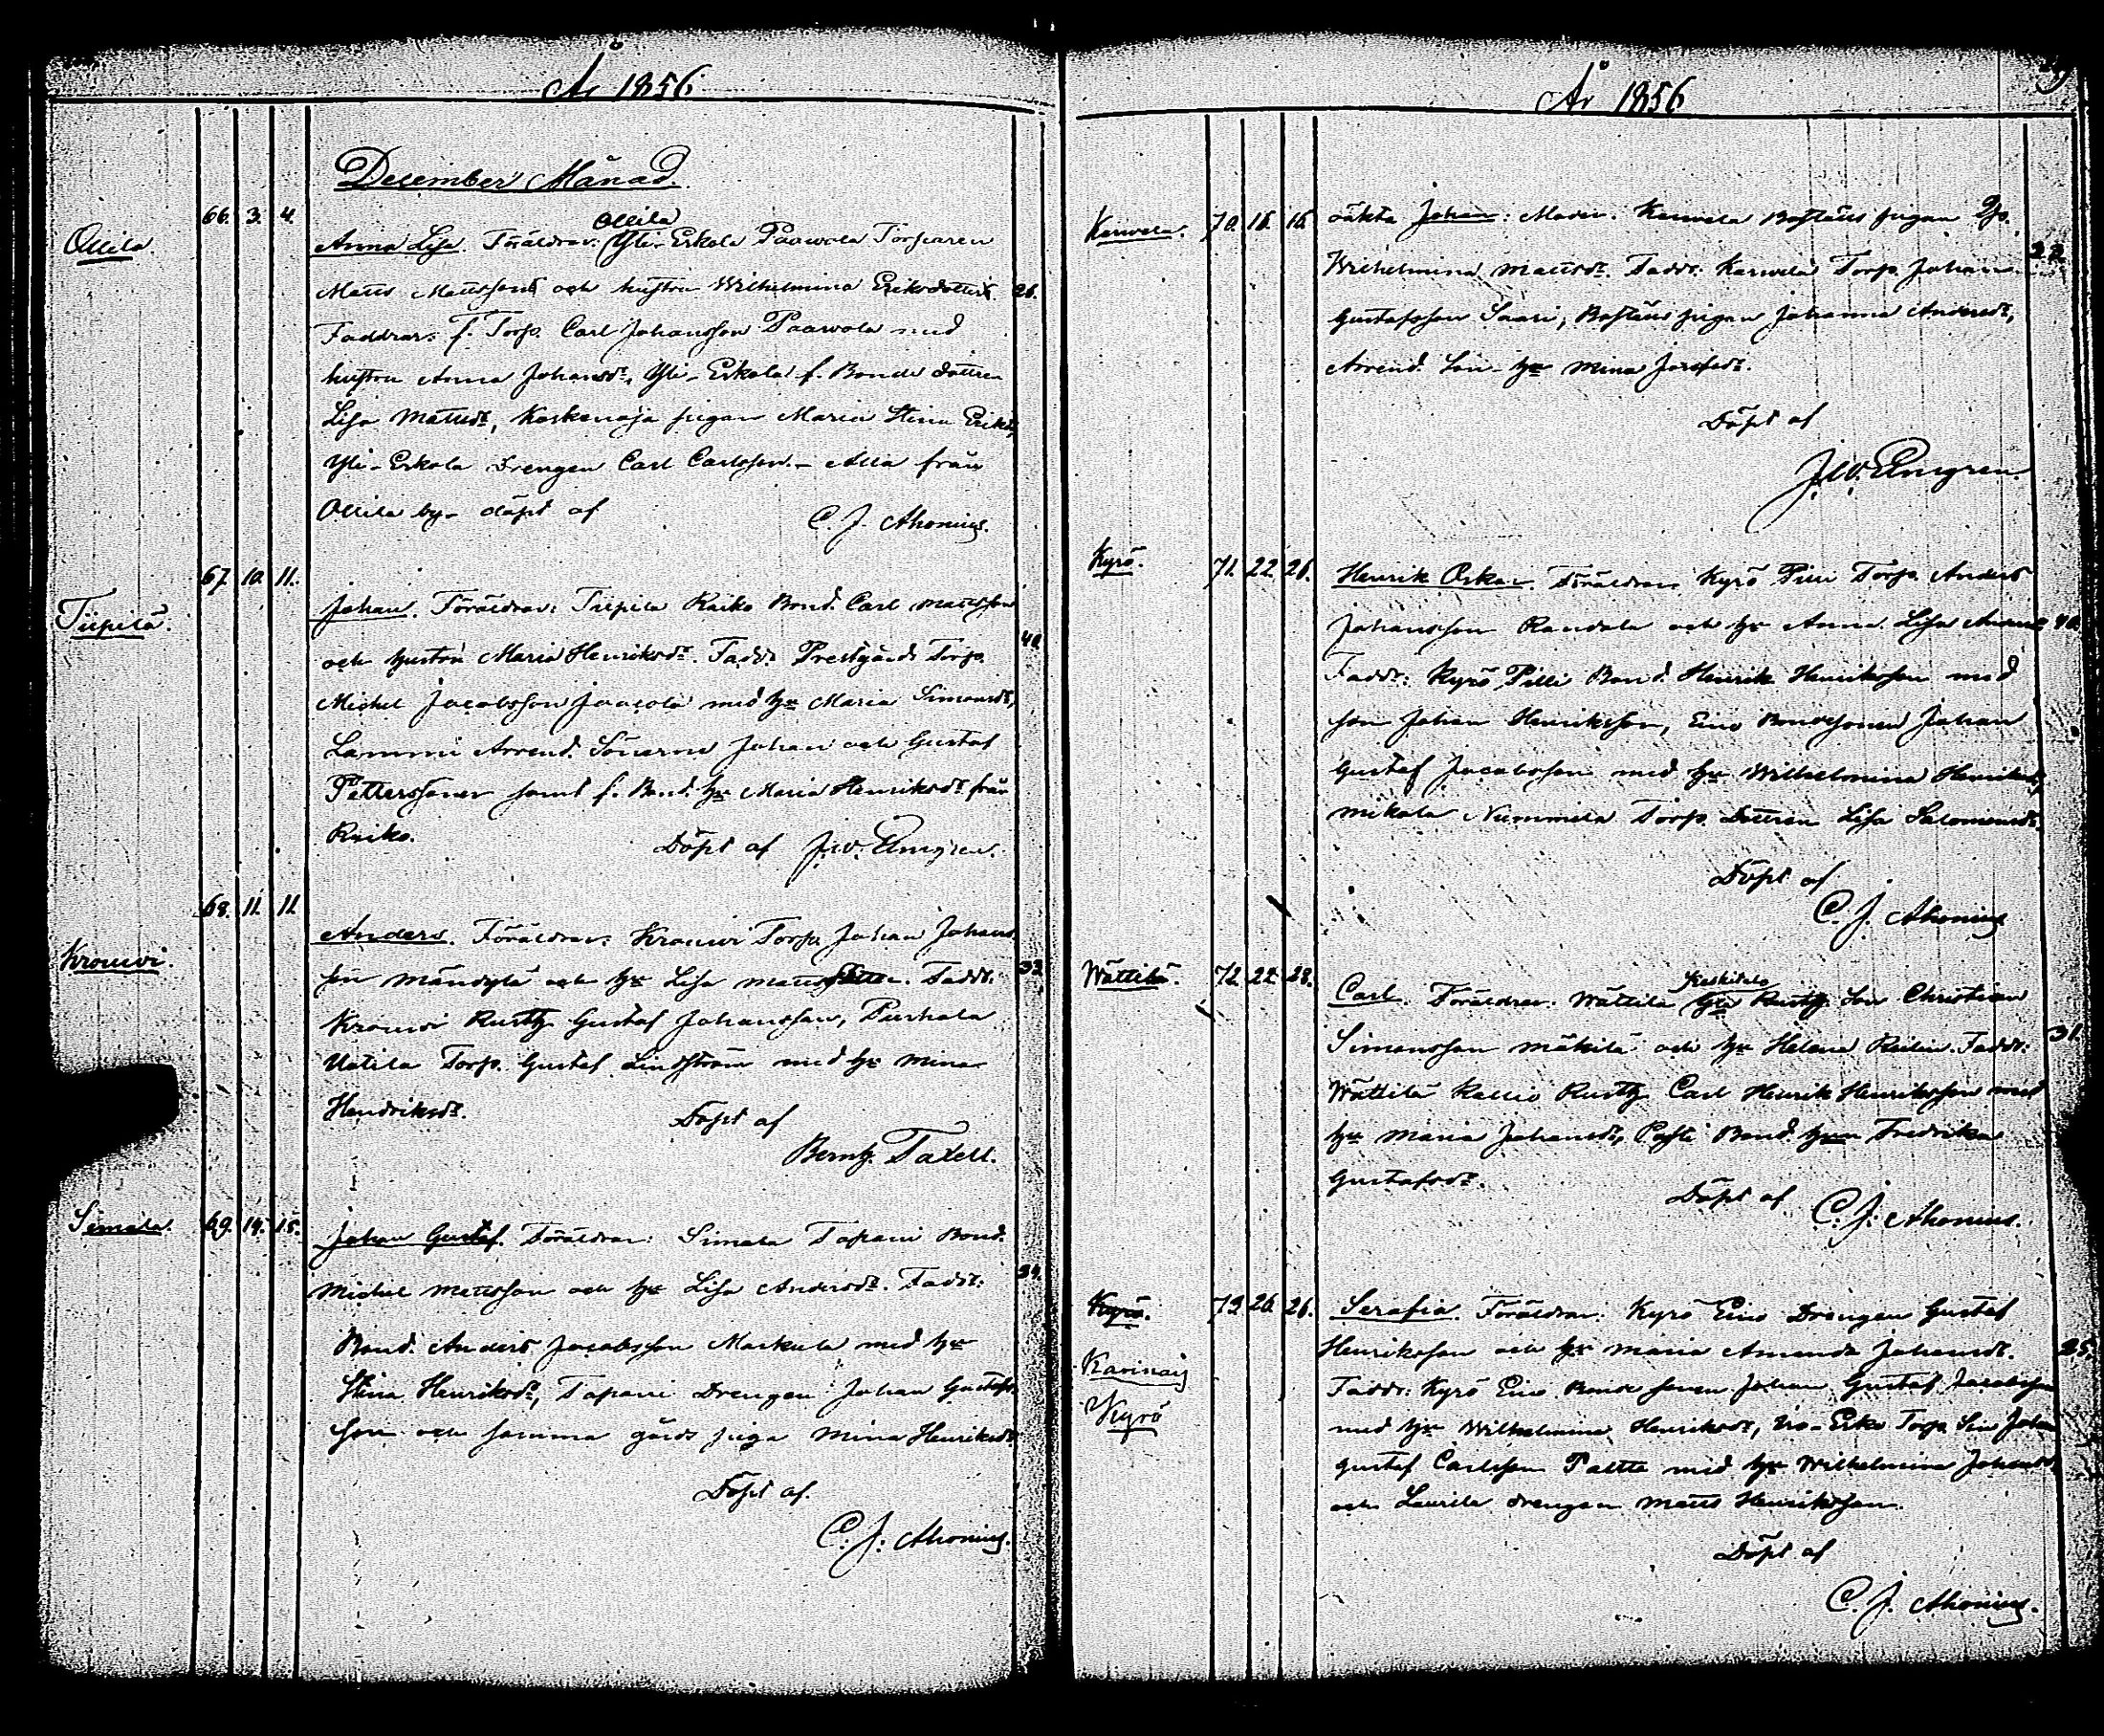 År 1856
December Månad.
Ollila. 66. 3. 4. Ollila
Anna Lisa. Föräldrar: Yli-Erkola Paawola Torparen
Matts Mattsson och hustru Wilhelmina Eriksdotter. 26.
Faddrar: f. Torp. Carl Johansson Paawola med
hustru Anna Johansdr, Yli-Erkola f. Bonde dottren
Lisa Mattsdr, Koskenoja pigan Maria Stina Eriksdr,
Yli-Erkola Drengen Carl Carlsson. - Alla från
Ollila by - döpt af C. J. Ahonius.
Tiipilä. 67. 10. 11.
Johan. Föräldrar: Tiipilä Raiko Bond. Carl Mattsson
och hustru Maria Henriksdr. Fadd: Prestgårds Torp. 40.
Michel Jacobsson Jaacola med hu Maria Simonsdr,
Lammi Arrend. Sönerne Johan och Gustaf
Petterssöner samt f. Bond. hu Maria Henriksdr från
Raiko. Döpt af J. W. Elmgren.
68. 11. 11.
Krouwi. Anders. Föräldrar: Krouwi Torp. Johan Johans-
son Mändylä och hu Lisa Matts dotter. Fadd: 33.
Krouwi Rusth. Gustaf Johansson, Purhala
Uotila Torp. Gustaf Lindström med hu Mina
Hendriksdr. Döpt af
Bernh. Taxell.
Simala. 69. 14. 15. Johan Gustaf. Föräldrar: Simala Tapani Bond.
Michel Mattsson och hu Lisa Andersdr. Fadd: 34.
Bond. Anders Jacobsson Markula med hu
Stina Henriksdr, Tapani Drengen Johan Gustafs-
son och samma gårds piga Mina Henriksdr
Döpt af
C. J. Ahonius.
År 1856
Karwela. 70. 15. 16. oäkta Johan: Moder: Karwela Boställs pigan
Wilhelmina Mattsdr. Faddr: Karwela Torp. Johan 22.
Gustafsson Saari, Boställs pigan Johanna Andersdr,
Arrend. Son hu Mina Josefsdr.
Döpt af
J. W. Elmgren.
Kyrö. 71. 22. 26. Henrik Oskar. Föräldrar: Kyrö Torp. Anders
Johansson Randala och hu Anna Lisa 40.
Faddr: Kyrö Pilli Bond. Henrik Henriksson med
son Johan Henriksson, Eino Bondesonen Johan
Gustaf Jacobsson med hu Wilhelmina Henriksdr,
Mikola Nummila Torp. Dottren Lisa Salomonsdr.
Döpt af
C. J. Ahonius
Wättilä. 72. 22. 28. Keskitalo
Carl. Föräldrar: Wättilä Rusth. Son Christian
Simonsson Mäkilä och hu Helena. Faddr: 31.
Wättilä Kallio Rusth. Carl Henrik Henriksson med
hu Maria Johansdr, Bond. hun Fredrika
Gustafsdr. Döpt af
C. J. Ahonius.
Kyrö. 73. 26. 26. Serafia. Föräldrar: Kyrö Eino Drengen Gustaf
Henriksson och hu Maria Amanda Johansdr. 25.
Karinais
Faddr: Kyrö Eino Bonde sonen Johan Gustaf Jacobsson
Kyrö
med hu Wilhelmina Henriksdr, Torp. Son Johan
Gustaf Carlsson Paltta med hu Wilhelmina Johansdr
och Laurila drengen Matts Henriksson.
Döpt af
C. J. Ahonius.